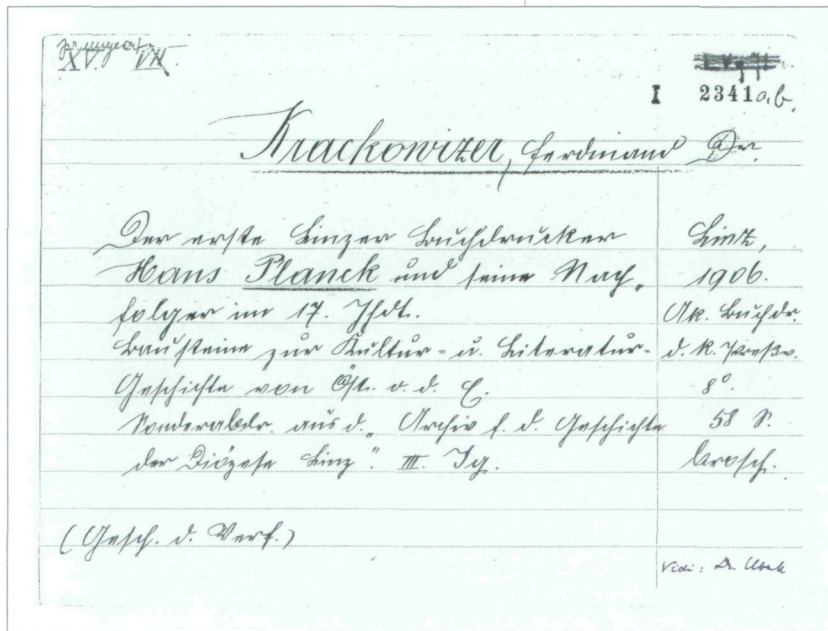 XV. VII
I 2341 a,b.
Krackowizer, Ferdinand Dr.
Der erste Linzer Buchdrucker
Hans Planck und seine Nach-
folger im 17. Jhdt.
Bausteine zur Kultur- u. Literatur-
Geschichte von Öst. o. d. E.
Sonderabdr. aus d. „Archiv f. d. Geschichte
der Diözese Linz". III. Jg.
(Gesch. d. Verf.)
Linz,
1906.
Ak. Buchdr.
d. k. Preßv.
8°.
58 S.
brosch.
Vidi: Dr.